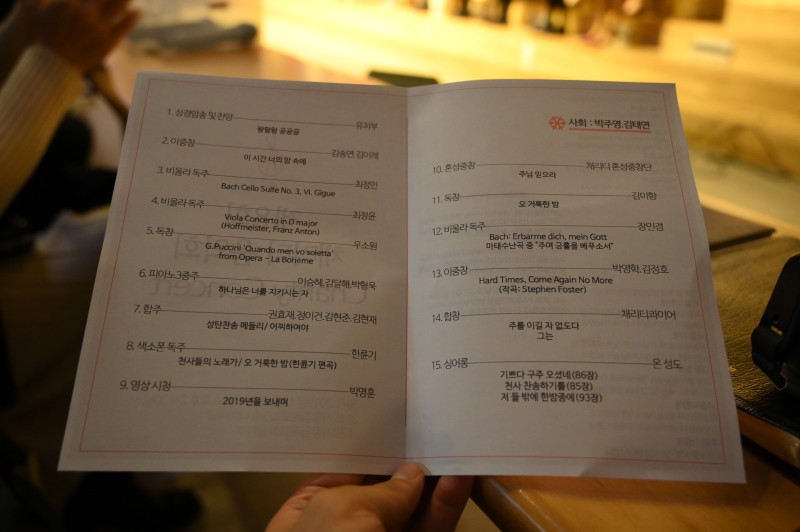 1. 성경암송 및 찬양 유치부
왕왕왕 공공공
2. 이중창 김송연, 김아레
이 시간 너의 맘 속에
3. 비올라 독주 최정민
Bach Cello Suite No. 3, VI. Gigue
4. 비올라 독주 최정윤
Viola Concerto in D major
(Hoffmeister, Franz Anton)
5. 독창 우소원
G.Puccini 'Quando men vo soletta'
from Opera - La Boheme
6. 피아노3중주 이승혜, 김달해, 박형욱
하나님은 너를 지키시는 자
7. 합주 권효재, 정이건, 김현준, 김현재
성탄찬송 메들리/ 어찌하여야
8. 색소폰 독주 한윤기
천사들의 노래가/ 오 거룩한 밤(한윤기 편곡)
9. 영상 시청 박명훈
2019년을 보내며
사회 : 박주영, 김태연
10. 혼성중창 채리티 혼성중창단
주님 믿으라
11. 독창 김미향
오 거룩한 밤
12. 비올라 독주 장민경
Bach: Erbarme dich, mein Gott
마태수난곡 중 "주여 긍휼을 베푸소서"
13. 이중창 박영학, 김정호
Hard Times, Come Again No More
(작곡: Stephen Foster)
14. 합창 채리티콰이어
주를 이길 자 없도다
그는
15. 싱어롱 온 성도
기쁘다 구주 오셨네 (86장)
천사 찬송하기를(85장)
저 들 밖에 한밤중에(93장)